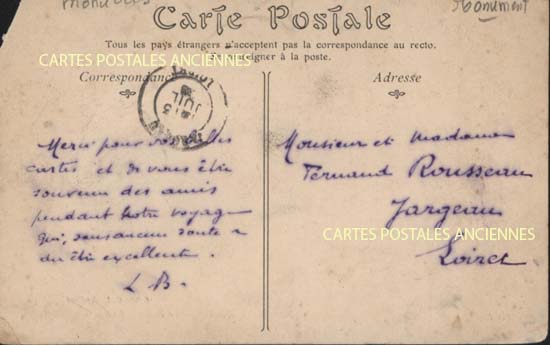 Monument
Carte Postale
Tous les pays étrangers n'acceptent pas la correspondance au recto.
Se renseigner à la poste.
CARTES POSTALES ANCIENNES
Correspondance
Adresse
JUIL
Merci pour vos belles
cartes et de vous être
souvenu des amis
pendant votre voyage
qui, sans aucun doute a
du être excellent.
L B.
Monsieur et Madame
Fernand Rousseau
Jargeau
CARTES POSTALES ANCIENNES
Loiret